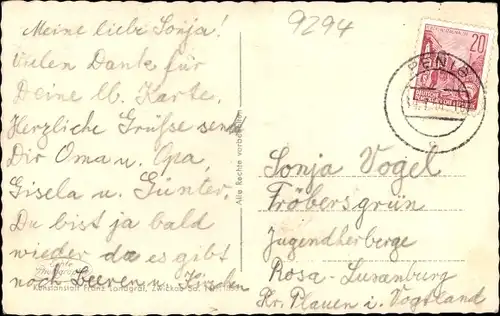 Meine liebe Sonja!
Vielen Dank für
Deine lb. Karte.
Herzliche Grüsse send
Dir Oma u. Opa,
Gisela u. Günter.
Du bist ja bald
wieder da es gibt
noch Beeren u. Kirschen
Echte
Kunstanstalt Franz Landgraf, Zwickau Sa.
Alle Rechte vorbehalten
9294
20
PENIG
Sonja Vogel
Fröbersgrün
Jugendherberge
Rosa-Luxanburg
Kr. Plauen i. Vogtland